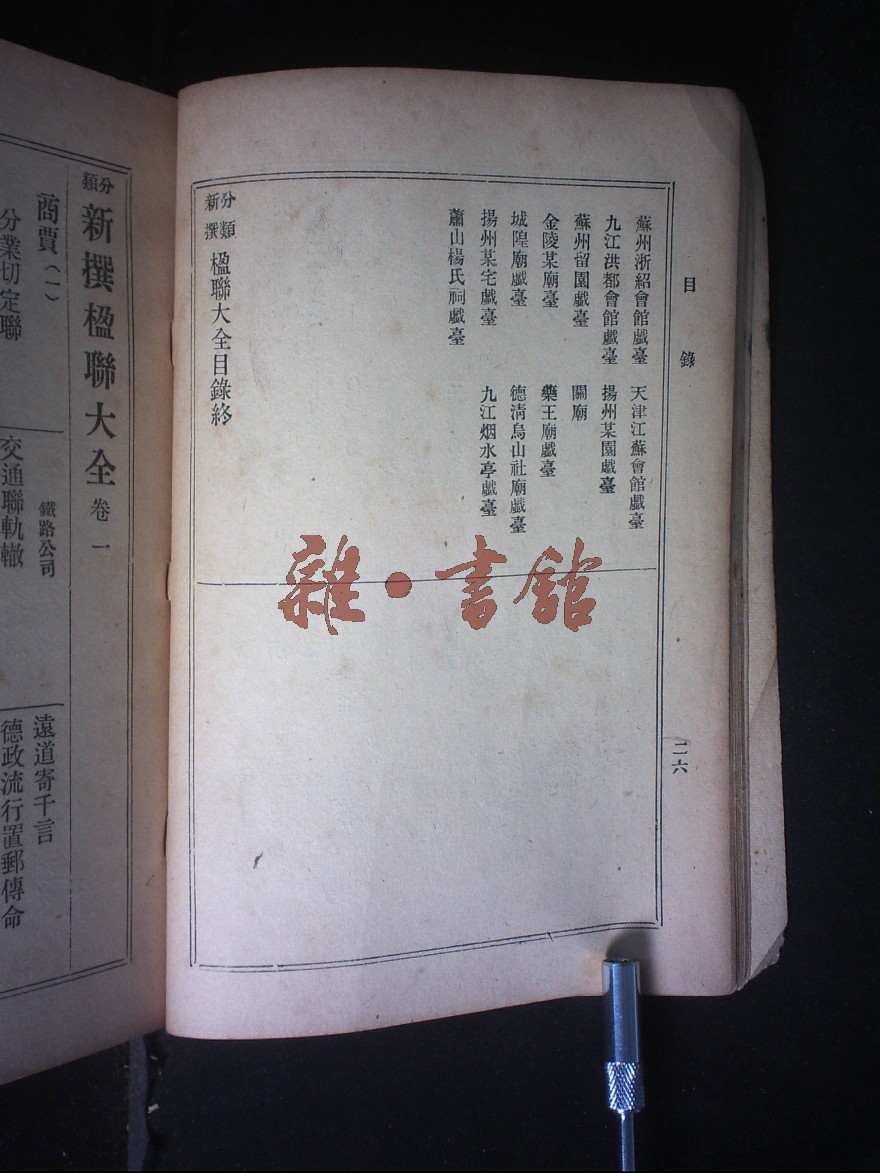 目錄
蘇州浙紹會館戲臺
天津江蘇會館戲臺
九江洪都會館戲臺
揚州某園戲臺
蘇州留園戲臺
關廟
金陵某廟臺
藥王廟戲臺
城隍廟戲臺
德清烏山社廟戲臺
揚州某宅戲臺
九江烟水亭戲臺
蕭山楊氏祠戲臺
分類新撰楹聯大全目錄終
二六
雜·書館
分類新撰楹聯大全卷一
商賈(一)
分業切定聯
鐵路公司
交通聯軌轍
遠道寄千言
德政流行置郵傳命